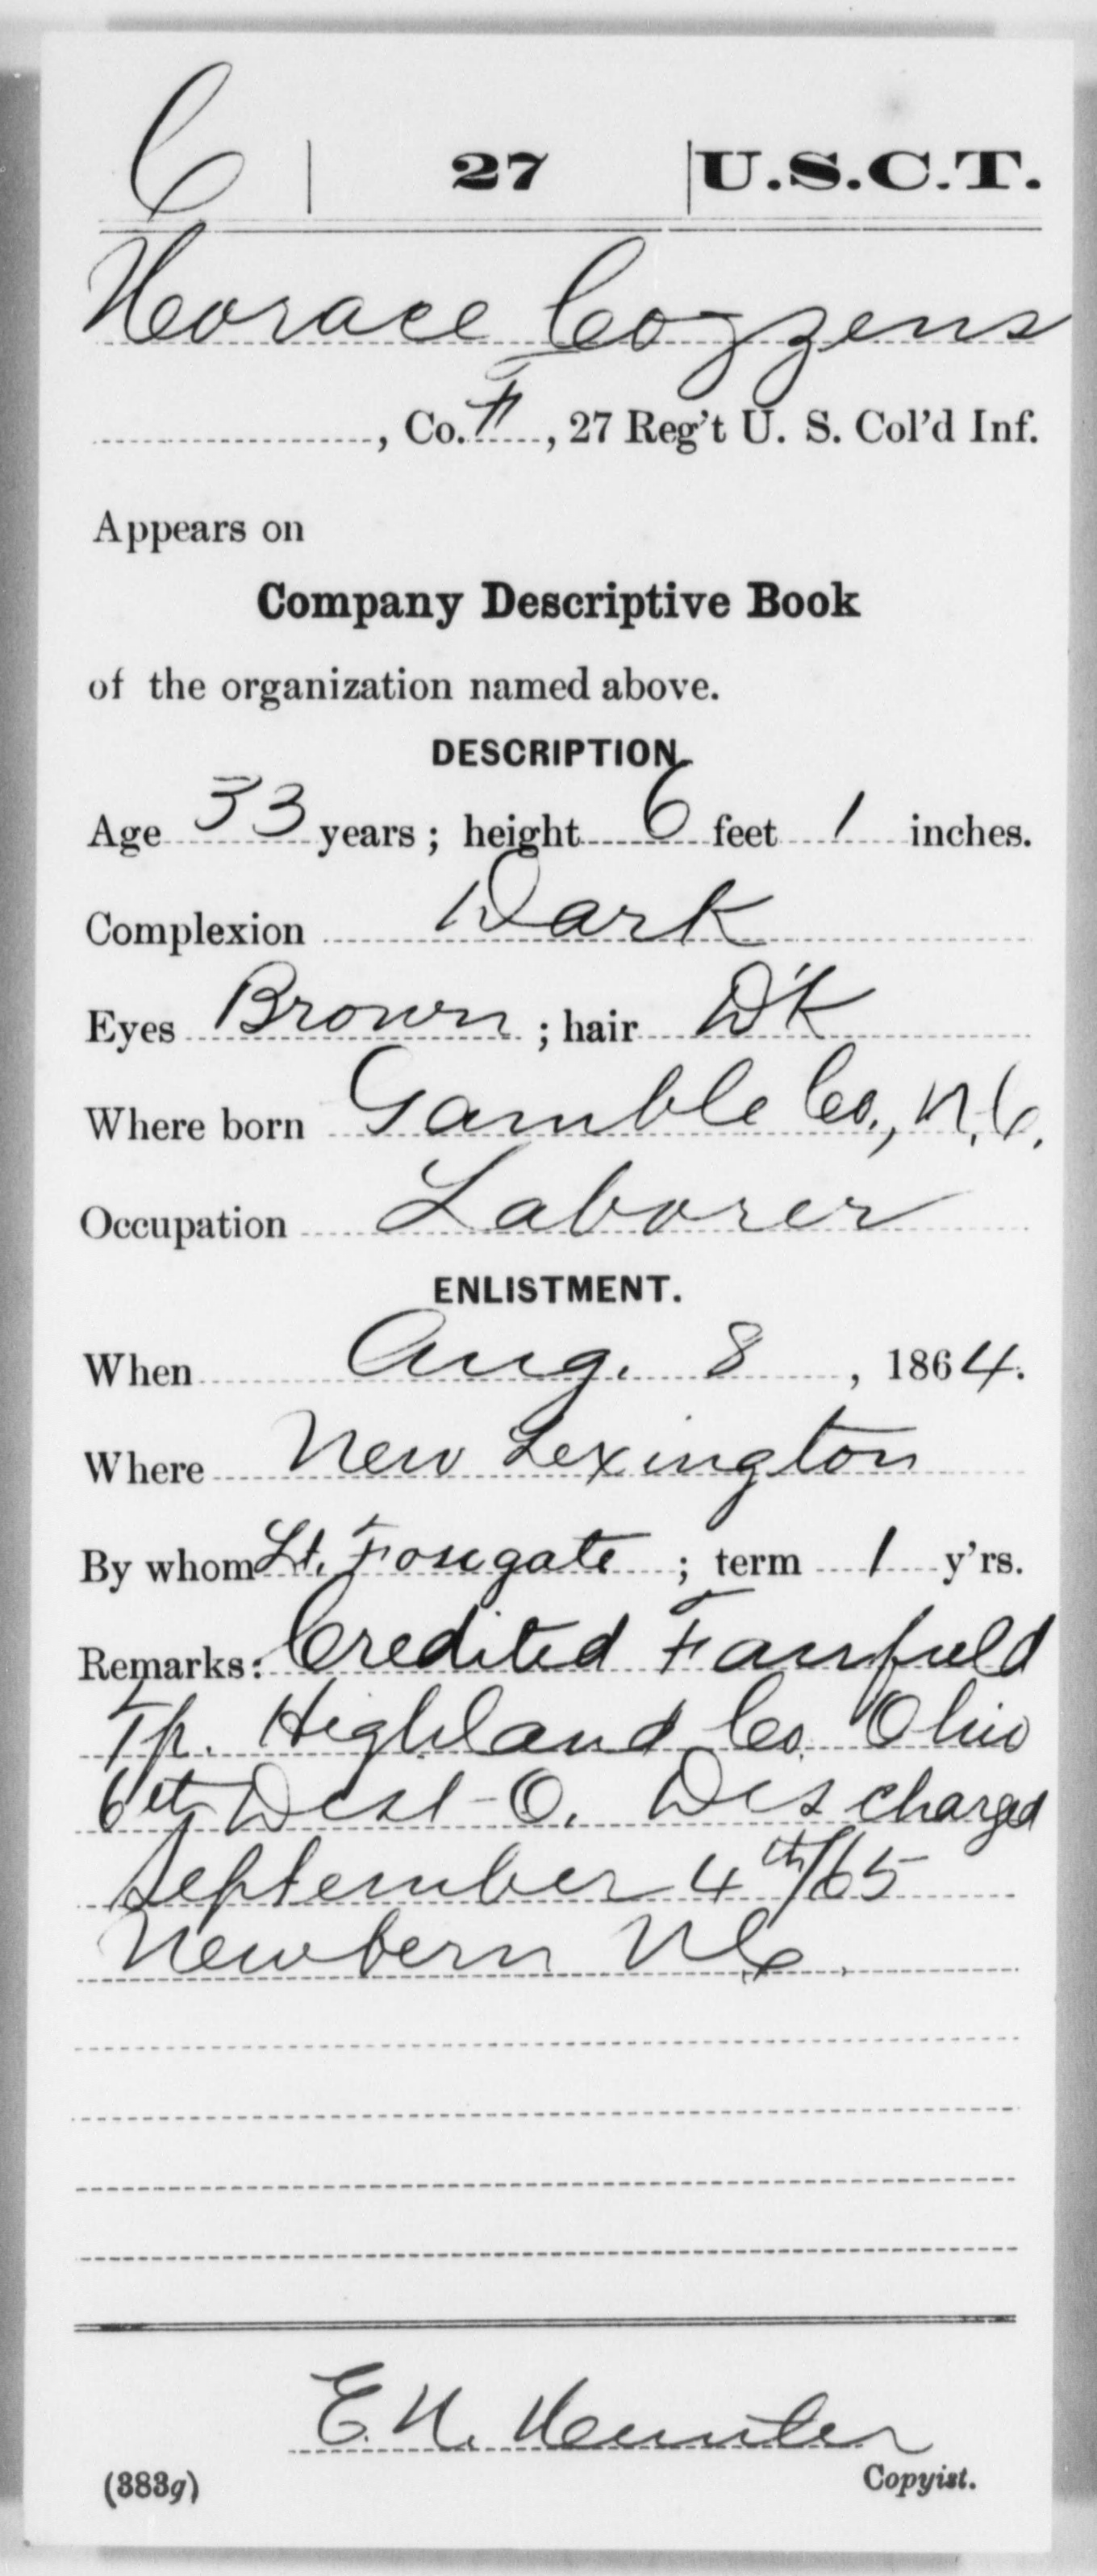 C | 27 | U.S.C.T.
Horace Cozzens
, Co. F, 27 Reg't U. S. Col'd Inf.
Appears on
Company Descriptive Book
of the organization named above.
DESCRIPTION.
Age 33 years; height 6 feet 1 inches.
Complexion Dark
Eyes Brown; hair D'k
Where born Gamble Co., N.C.
Occupation Laborer
ENLISTMENT.
When Aug. 8, 1864.
Where New Lexington
By whom Lt. Fosegate; term 1 y'rs.
Remarks: Credited Fairfield
Tp. Highland Co. Ohio
6th Dist-O. Discharged
September 4th/65
Newbern N.C.
E. N.
Copyist.
(383g)